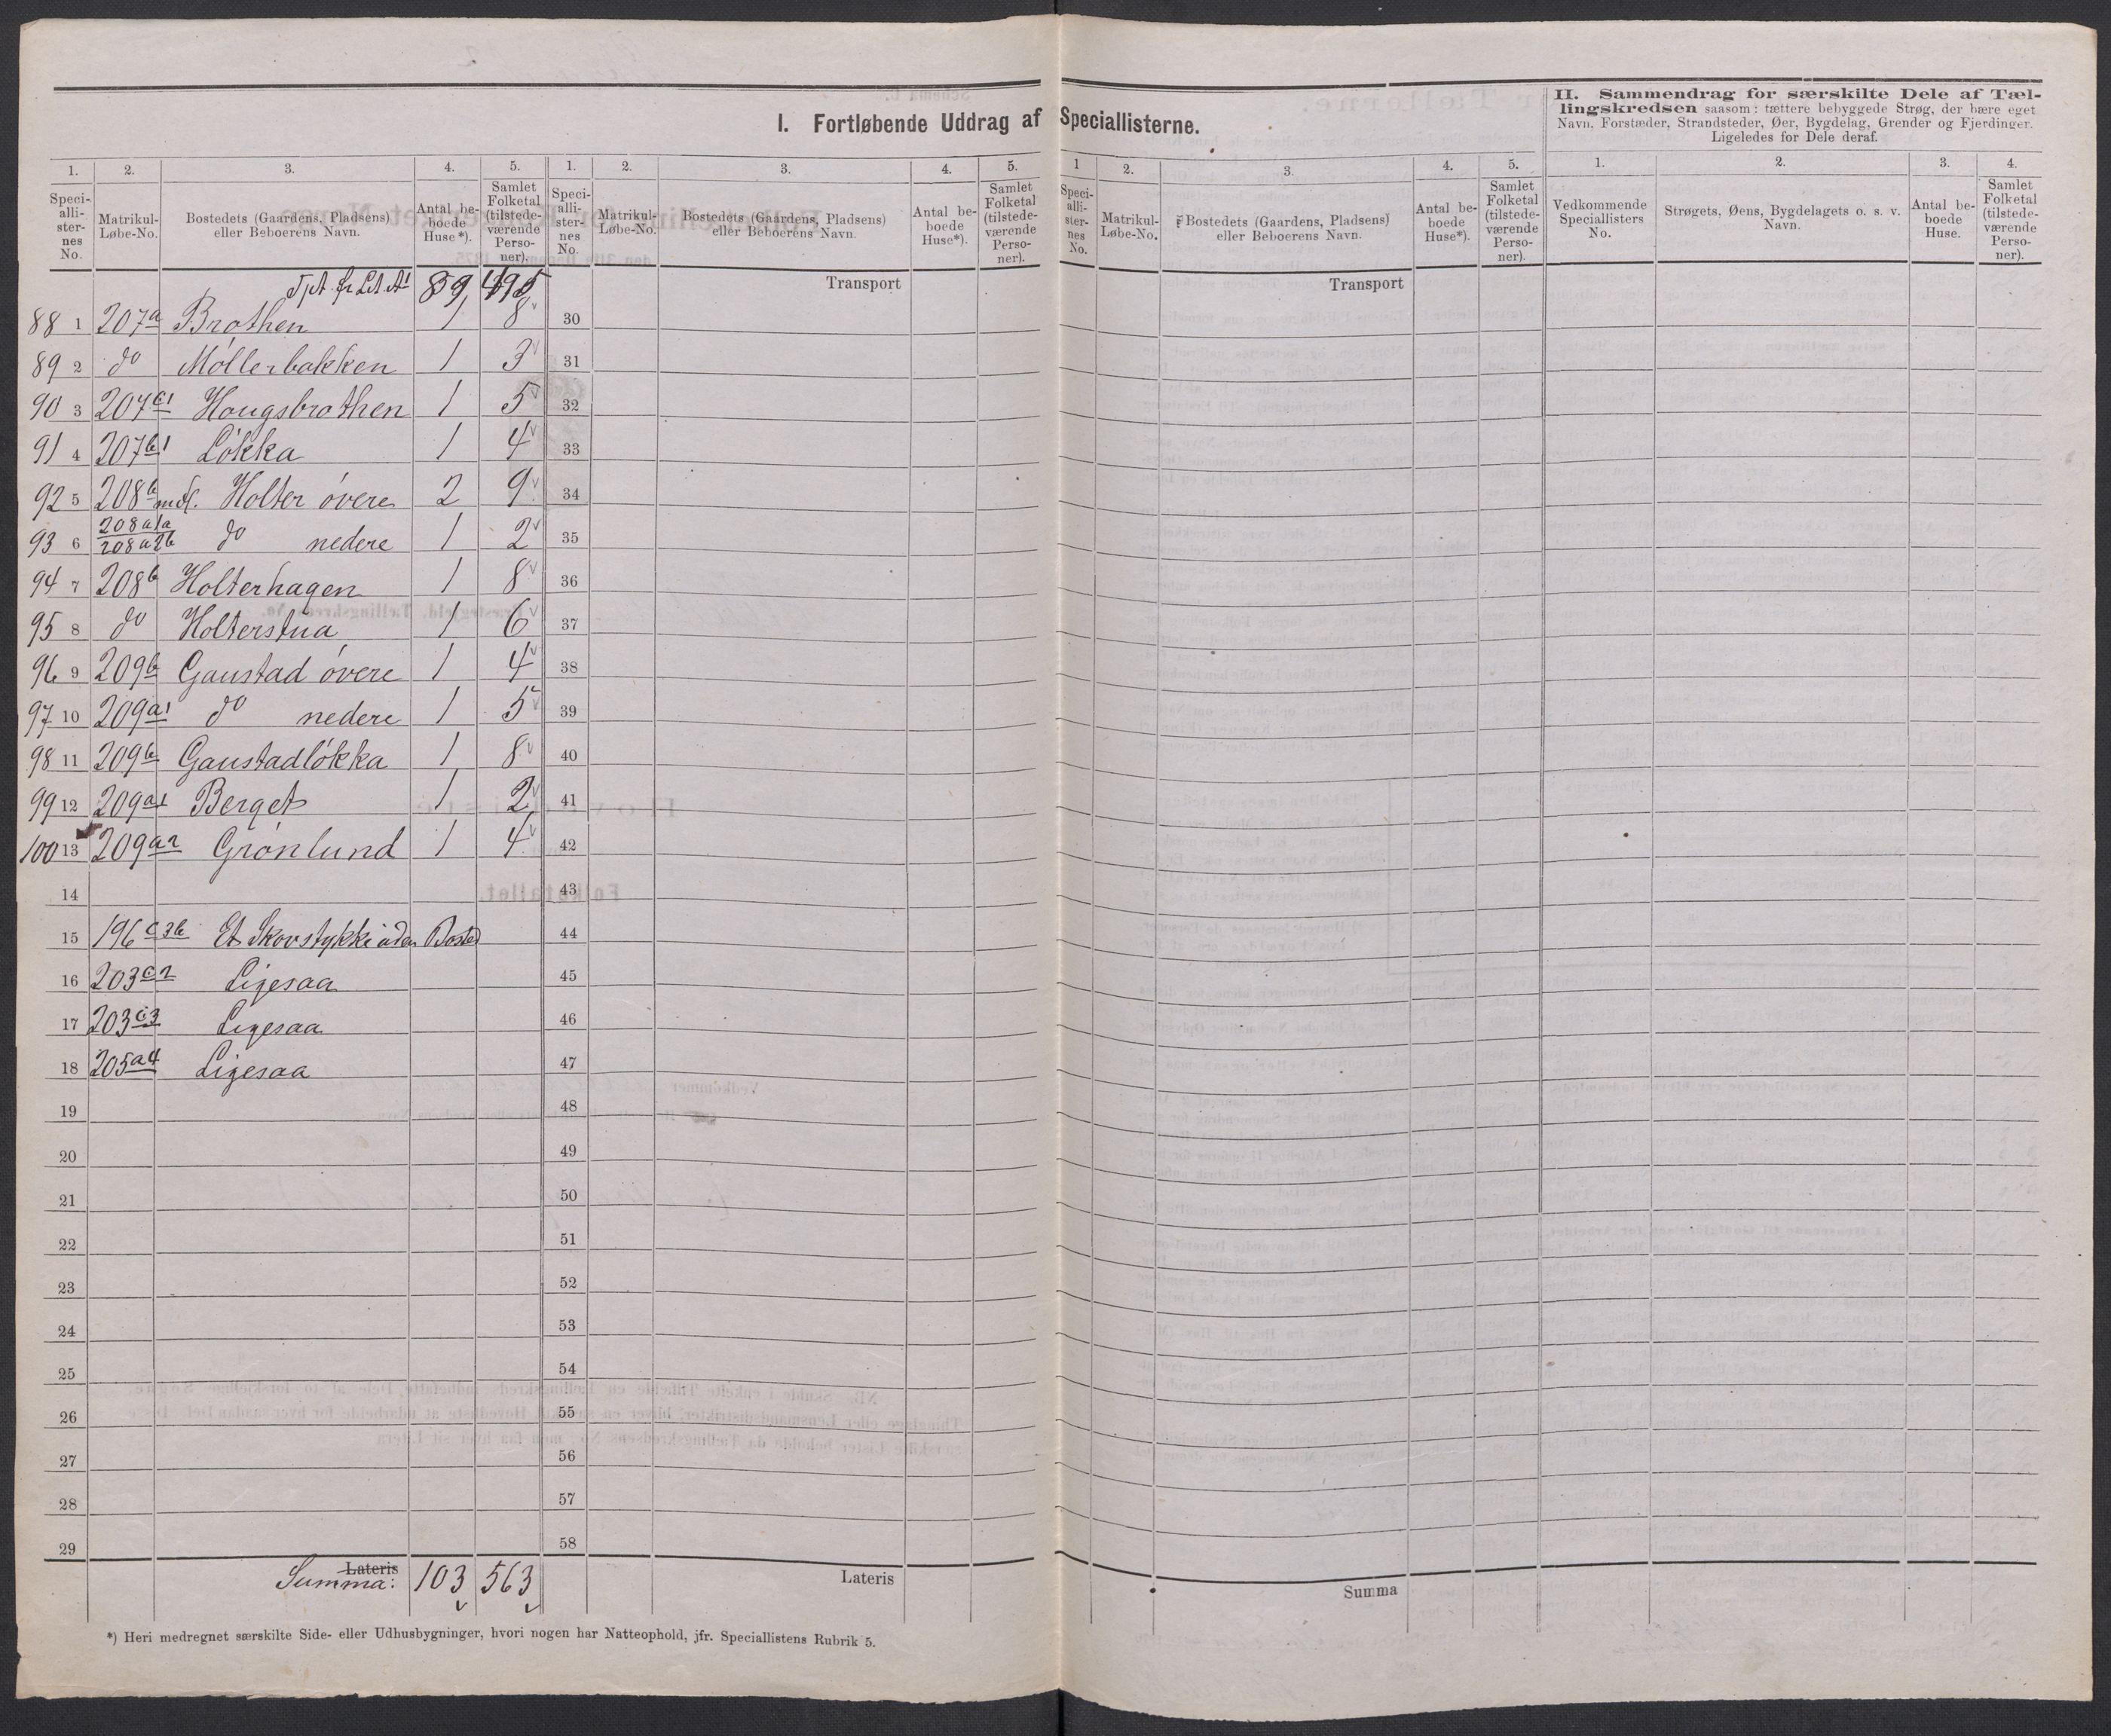 I. Fortløbende Uddrag af Speciallisterne.
II. Sammendrag for særskilte Dele af Tæl-
lingskredsen saasom: tættere bebyggede Strøg, der bære eget
Navn, Forstæder, Strandsteder, Øer, Bygdelag, Grender og Fjerdinger.
Ligeledes for Dele deraf.
1. 2. 3. 4. 5. 1. 2. 3. 4. 5. 1 2. 3. 4. 5. 1. 2. 3. 4.
Speci-
alli-
ster-
nes
No.
Matrikul-
Løbe-No.
Bostedets (Gaardens, Pladsens)
eller Beboerens Navn.
Antal be-
boede
Huse*).
Samlet
Folketal
(tilstede-
værende
Perso-
ner).
Speci-
alli-
ster-
nes
No.
Matrikul-
Løbe-No.
Bostedets (Gaardens, Pladsens)
eller Beboerens Navn.
Antal be-
boede
Huse*).
Samlet
Folketal
(tilstede-
værende
Perso-
ner).
Speci-
alli-
ster-
nes
No.
Matrikul-
Løbe-No.
Bostedets (Gaardens, Pladsens)
eller Beboerens Navn.
Antal be-
boede
Huse*).
Samlet
Folketal
(tilstede-
værende
Perso-
ner).
Vedkommende
Speciallisters
No.
Strøgets, Øens, Bygdelagets o. s. v.
Navn.
Antal be-
boede
Huse.
Samlet
Folketal
(tilstede-
værende
Perso-
ner).
Tpt. fr Lit. A1 89 495 Transport Transport
88 1 207a Brothen 1 8 30
89 2 do Möllerbakken 1 3 31
90 3 207c1 Hougsbrothen 1 5 32
91 4 207b1 Lökka 1 4 33
92 5 208b mfl. Holter övere 2 9 34
93 6 208a1a 208a2b do nedere 1 2 35
94 7 208b Holterhagen 1 8 36
95 8 do Holterstua 1 6 37
96 9 209b Gaustad övere 1 4 38
97 10 209a1 do nedere 1 5 39
98 11 209b Gaustadlökka 1 8 40
99 12 209a1 Berget 1 2 41
100 13 209a2 Grönlund 1 4 42
14 43
15 196c3b Et Skovstykke uden Bosted 44
16 203c2 Ligesaa 45
17 203c3 Ligesaa 46
18 205a4 Ligesaa 47
19 48
20 49
21 50
22 51
23 52
24 53
25 54
26 55
27 56
28 57
29 58
Lateris
Summa: 103 563 Lateris Summa
*) Heri medregnet særskilte Side- eller Udhusbygninger, hvori nogen har Natteophold, jfr. Speciallistens Rubrik 5.